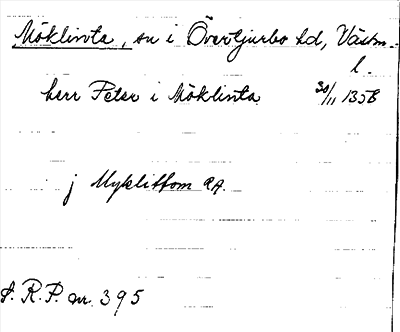 Möklinta, sn i Övertjurbo hd, Västm.
l.
herr Peter i Möklinta 30/11 1358
j Myklittom RA.
S. R. P. nr. 395